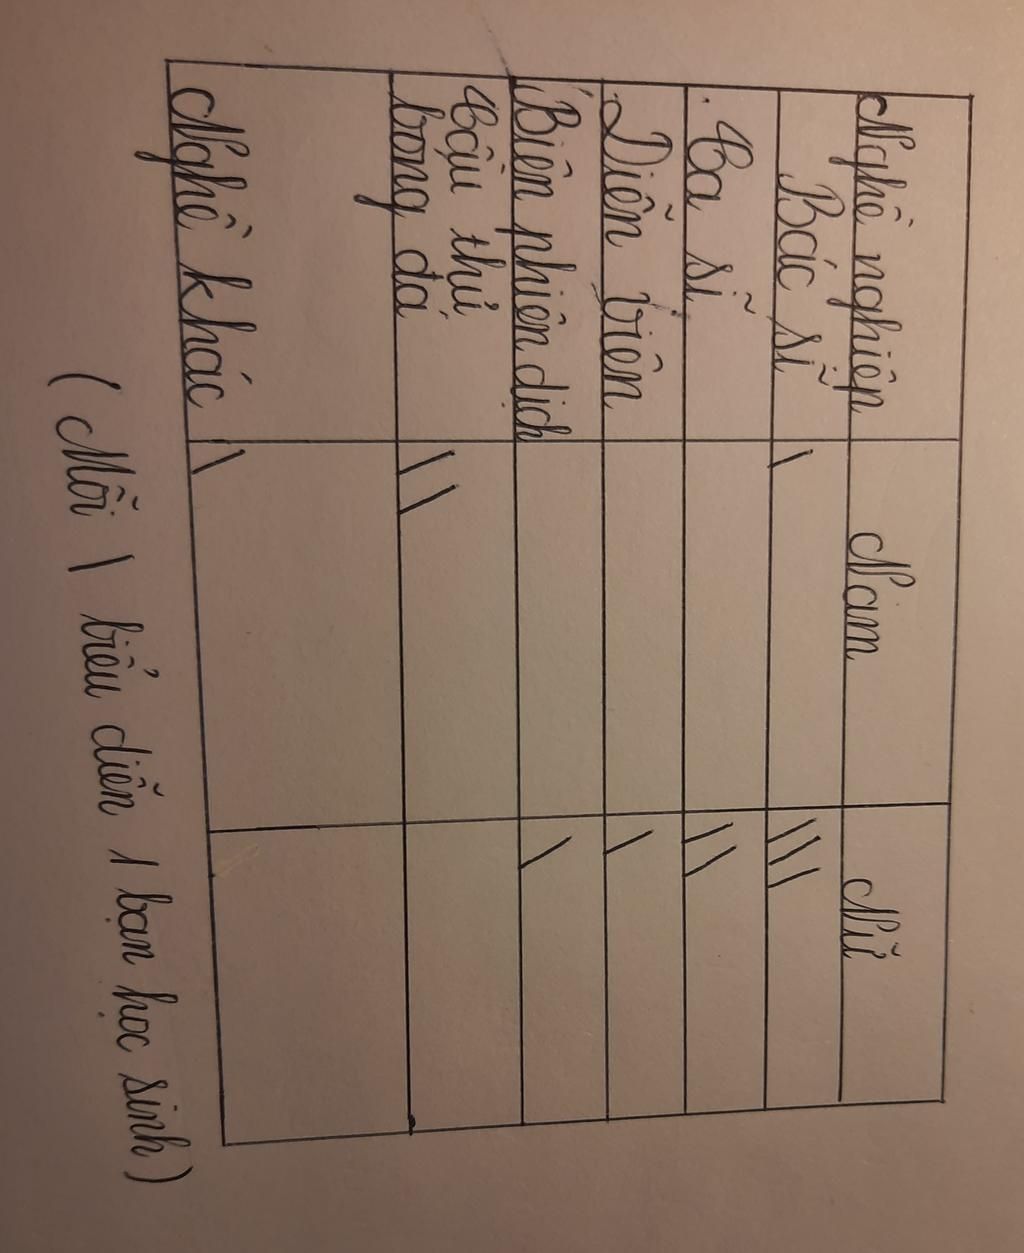 Nghề nghiệp Nam Nữ
Bác sĩ \ \\\
Ca sĩ \\
Diễn viên \
Biên phiên dịch \
Cầu thủ
bóng đá \\
Nghề khác \
(Mỗi \ biểu diễn 1 bạn học sinh)